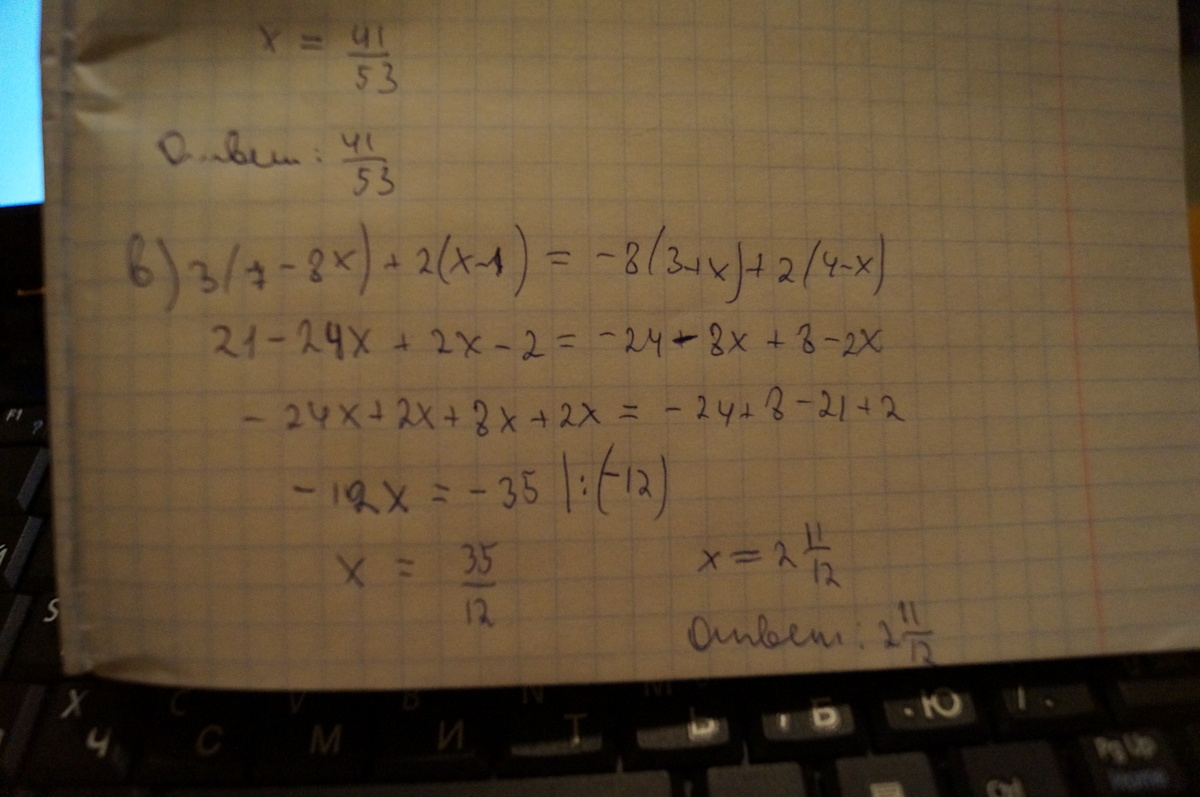 x = 41/53
Ответ: 41/53
в) 3(7 - 8x) + 2(x-1) = -8(3+x) + 2(4-x)
21 - 24x + 2x - 2 = -24 - 8x + 8 - 2x
- 24x + 2x + 8x + 2x = - 24 + 8 - 21 + 2
- 12x = - 35 |:(-12)
x = 35/12 x = 2 11/12
Ответ: 2 11/12
F1 ?
S
Х Ч С М И Т Ь , Б . Ю / .
Pg Up
Home